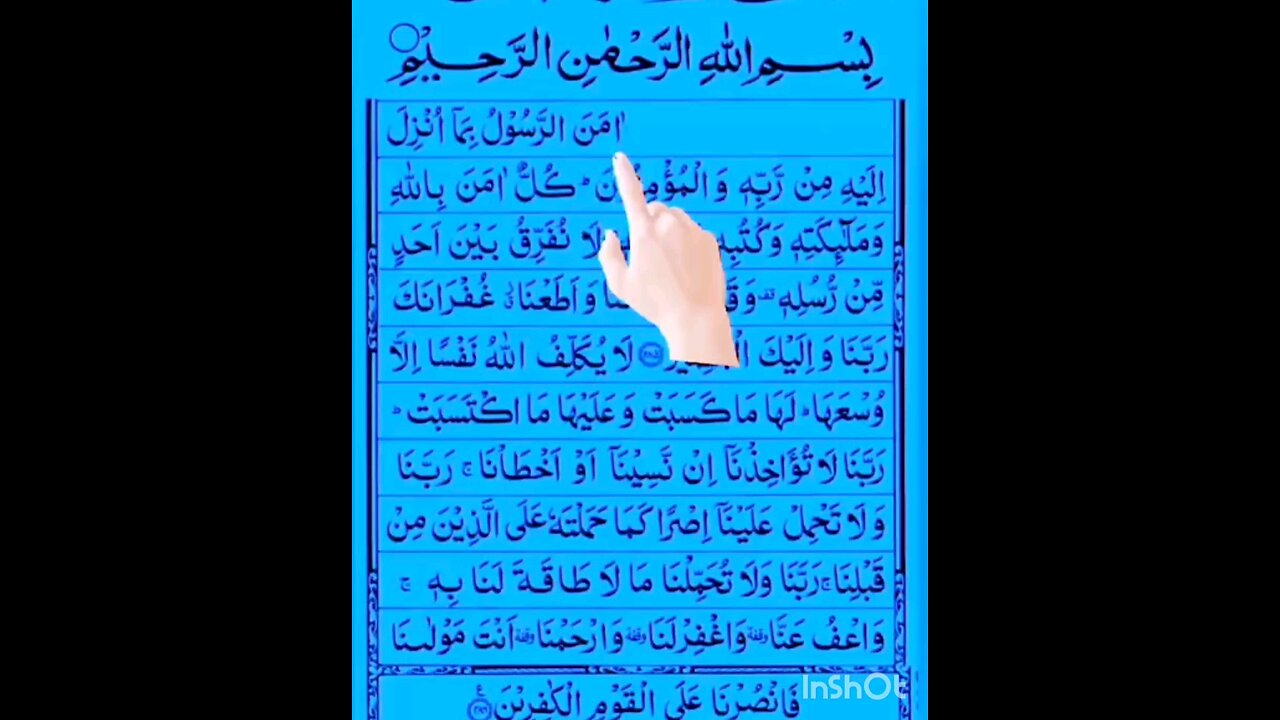 بِسْمِ اللهِ الرَّحْمٰنِ الرَّحِيْمِ
اٰمَنَ الرَّسُوْلُ بِمَآ اُنْزِلَ
اِلَيْهِ مِنْ رَّبِّهٖ وَالْمُؤْمِنُوْنَ ؕ كُلٌّ اٰمَنَ بِاللهِ
وَمَلٰٓئِكَتِهٖ وَكُتُبِهٖ لَا نُفَرِّقُ بَيْنَ اَحَدٍ
مِّنْ رُّسُلِهٖ قف وَاَطَعْنَا غُفْرَانَكَ
رَبَّنَا وَاِلَيْكَ الْمَصِيْرُ ﴿۲۸۵﴾ لَا يُكَلِّفُ اللهُ نَفْسًا اِلَّا
وُسْعَهَا ؕ لَهَا مَا كَسَبَتْ وَعَلَيْهَا مَا اكْتَسَبَتْ ؕ
رَبَّنَا لَا تُؤَاخِذْنَآ اِنْ نَّسِيْنَآ اَوْ اَخْطَاْنَا ۚ رَبَّنَا
وَلَا تَحْمِلْ عَلَيْنَآ اِصْرًا كَمَا حَمَلْتَهٗ عَلَى الَّذِيْنَ مِنْ
قَبْلِنَا ۚ رَبَّنَا وَلَا تُحَمِّلْنَا مَا لَا طَاقَةَ لَنَا بِهٖ ۚ
وَاعْفُ عَنَّا وقفة وَاغْفِرْلَنَا وقفة وَارْحَمْنَا وقفة اَنْتَ مَوْلٰىنَا
فَانْصُرْنَا عَلَى الْقَوْمِ الْكٰفِرِيْنَ ﴿۲۸۶﴾
InShOt